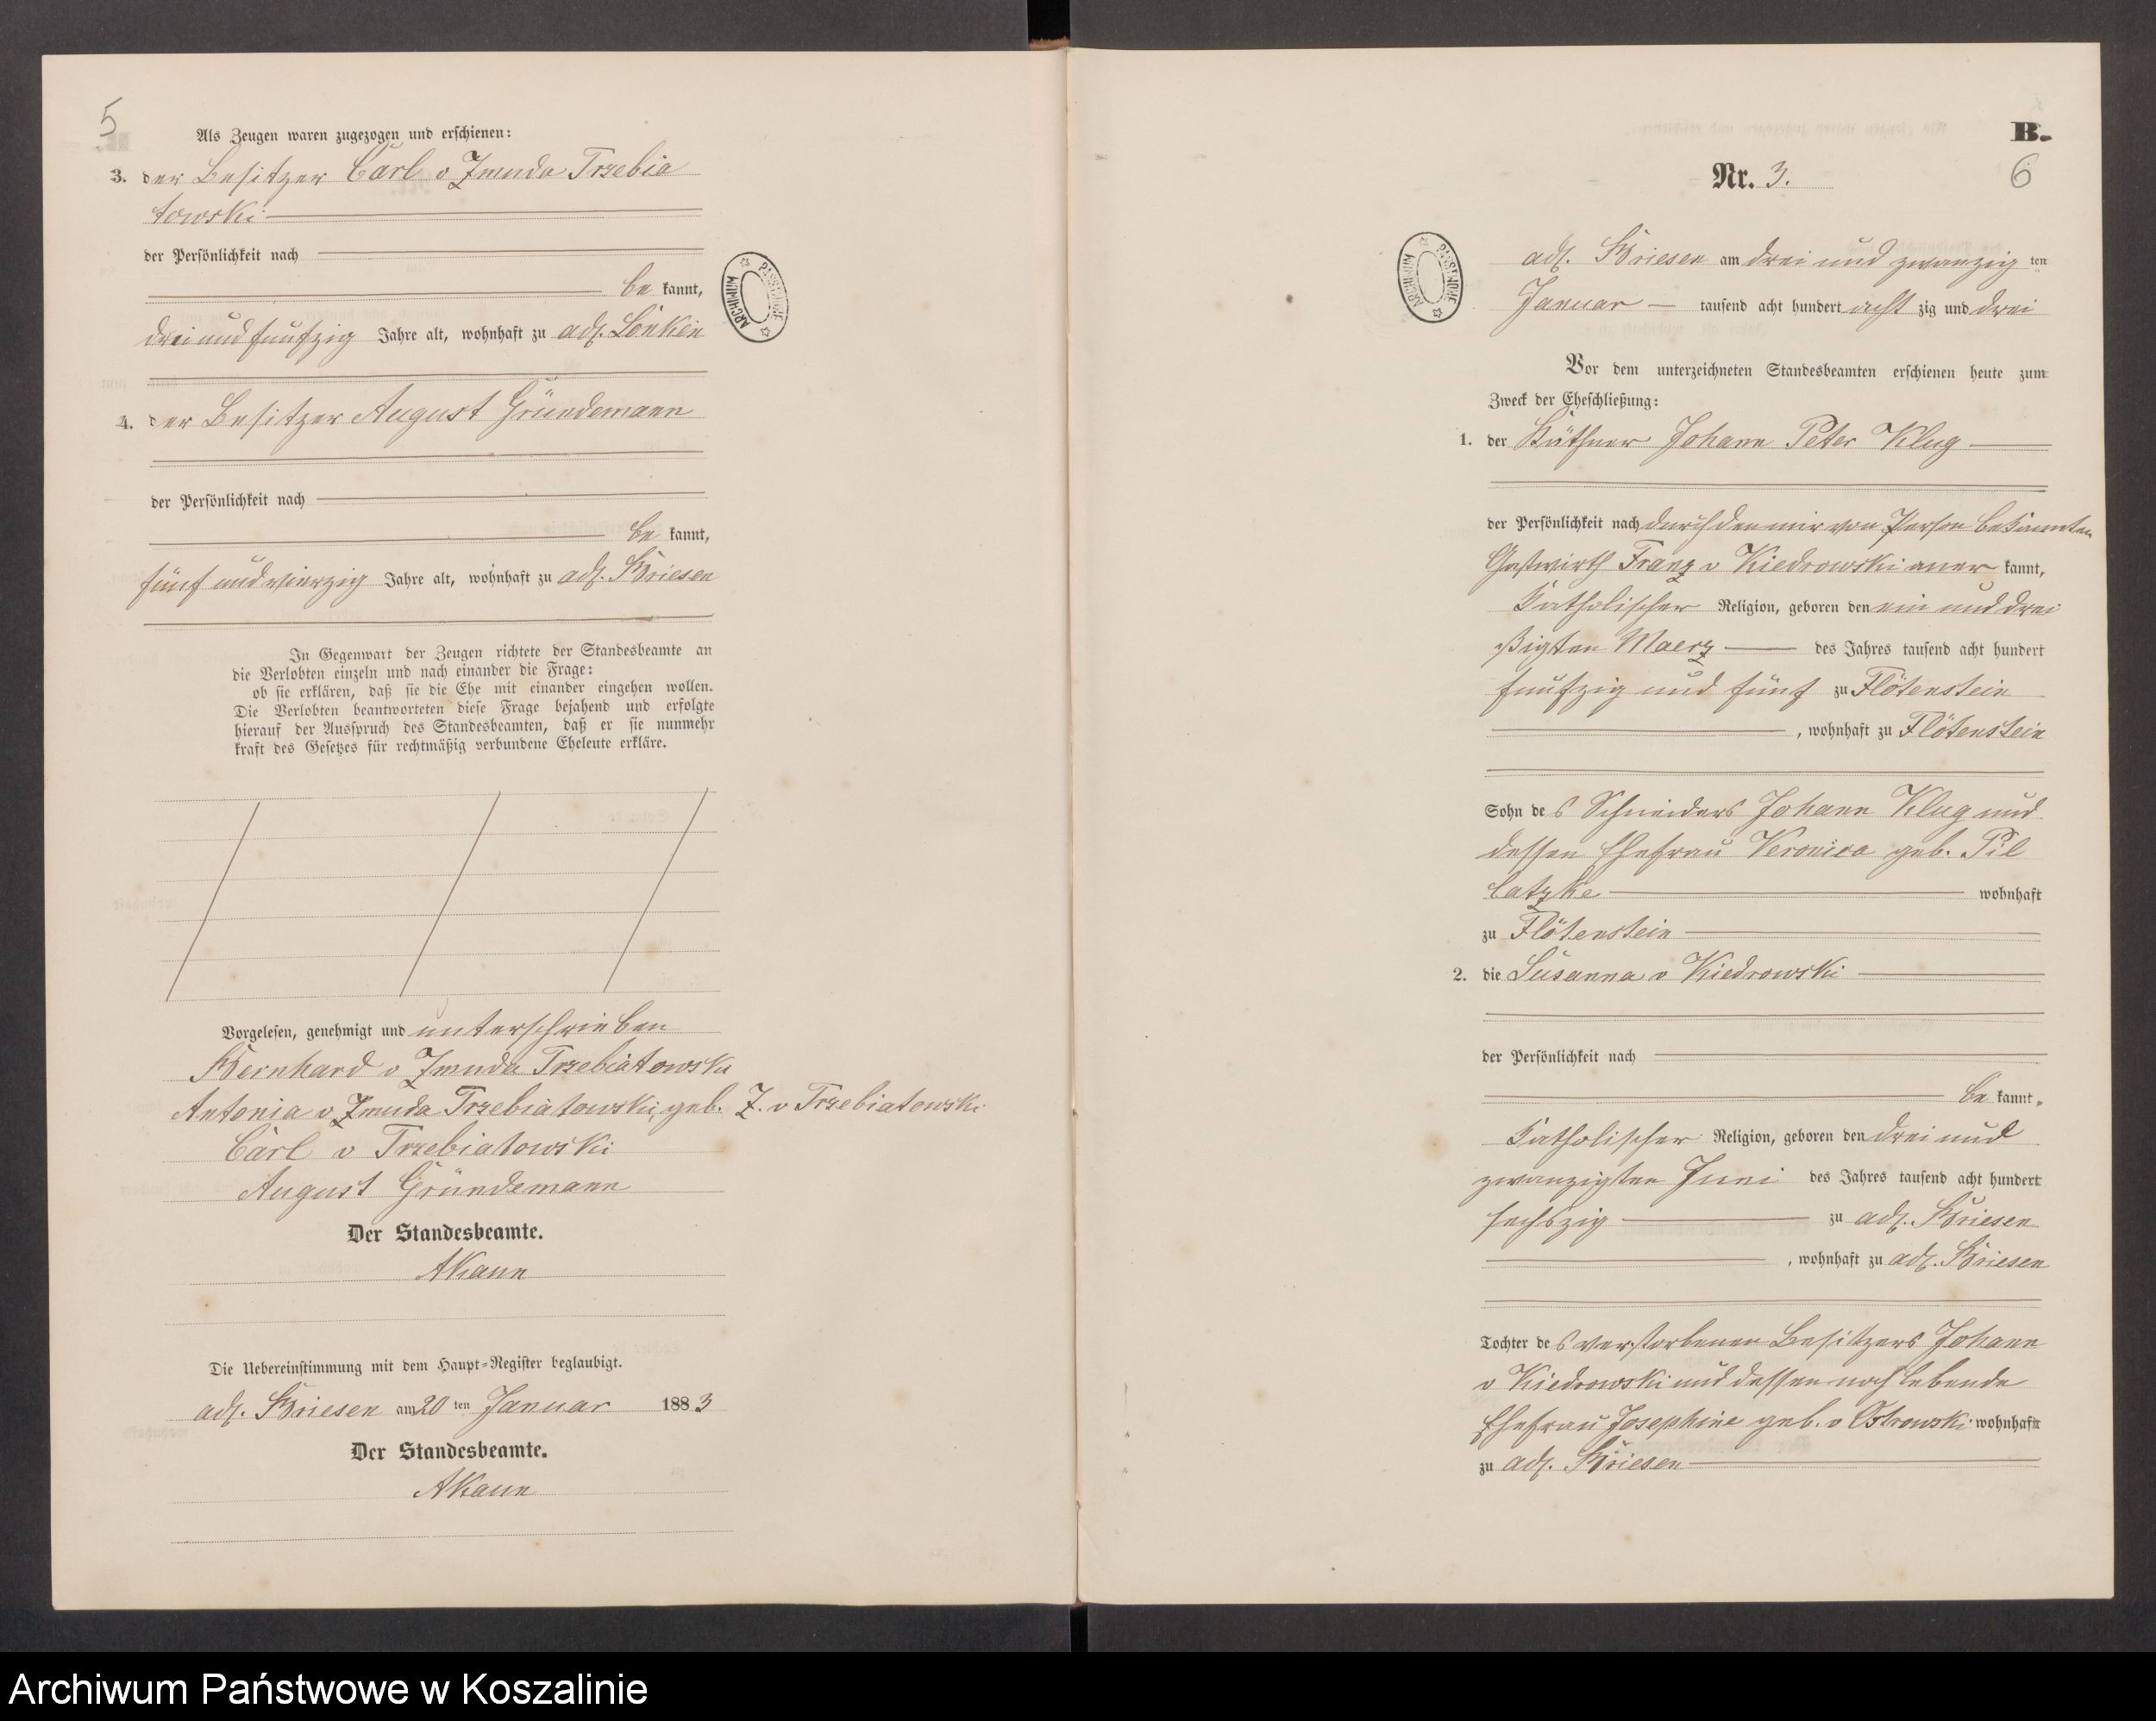 5
Als Zeugen waren zugezogen und erschienen:
3. der Besitzer Carl v Zmuda Trzebia
towski
der Persönlichkeit nach
be kannt,
drei und fünfzig Jahre alt, wohnhaft zu adl. Lonken
4. der Besitzer August Gründemann
der Persönlichkeit nach
be kannt,
fünf und vierzig Jahre alt, wohnhaft zu adl. Briesen
In Gegenwart der Zeugen richtete der Standesbeamte an
die Verlobten einzeln und nach einander die Frage:
ob sie erklären, daß sie die Ehe mit einander eingehen wollen.
Die Verlobten beantworteten diese Frage bejahend und erfolgte
hierauf der Ausspruch des Standesbeamten, daß er sie nunmehr
kraft des Gesetzes für rechtmäßig verbundene Eheleute erkläre.
Vorgelesen, genehmigt und unterschrieben
Bernhard v Zmuda Trzebiatowski
Antonia v Zmuda Trzebiatowski, geb. Z. v Trzebiatowski
Carl v Trzebiatowski
August Gründemann
Der Standesbeamte.
AKann
Die Uebereinstimmung mit dem Haupt-Register beglaubigt.
adl. Briesen am 20 ten Januar 1883
Der Standesbeamte.
AKann
ARCHIWUM PAŃSTWOWE
B.
6
Nr. 3.
ARCHIWUM PAŃSTWOWE
adl. Briesen am drei und zwanzig ten
Januar tausend acht hundert acht zig und drei
Vor dem unterzeichneten Standesbeamten erschienen heute zum
Zweck der Eheschließung:
1. der Käthner Johann Peter Klug
der Persönlichkeit nach durch den mir von Person bekannten
Gastwirth Franz v Kiedrowski aner kannt,
katholischer Religion, geboren den ein und drei
ßigten Maerz des Jahres tausend acht hundert
fünfzig und fünf zu Flötenstein
, wohnhaft zu Flötenstein
Sohn des Schneiders Johann Klug und
dessen Ehefrau Veronica geb. Pil
latzke wohnhaft
zu Flötenstein
2. die Susanna v Kiedrowski
der Persönlichkeit nach
be kannt,
katholischer Religion, geboren den drei und
zwanzigten Juni des Jahres tausend acht hundert
sechszig zu adl. Briesen
, wohnhaft zu adl. Briesen
Tochter des verstorbenen Besitzers Johann
v Kiedrowski und dessen noch lebende
Ehefrau Josephine geb. v Ostrowski wohnhaft
zu adl. Briesen
Archiwum Państwowe w Koszalinie